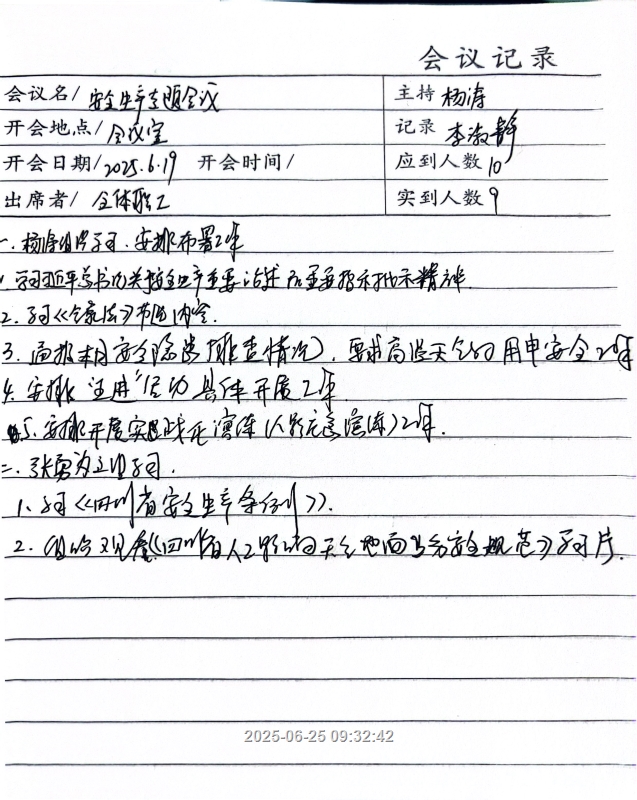 会议记录
会议名/ 安全生产专题会议 主持 杨涛
开会地点/ 会议室 记录 李淑静
开会日期/ 2025.6.19 开会时间/ 应到人数 10
出席者/ 全体职工 实到人数 9
一、杨涛组织学习、安排布署工作
1、学习习近平总书记关于安全生产重要论述和重要指示批示精神.
2、学习《气象法》节选内容.
3、通报本月安全隐患(排查情况),要求高温天气的用电安全工作
4、安排"五进"活动具体开展工作.
5、安排开展实战演练(人影应急演练)工作.
二、张勇为主讲学习.
1、学习《四川省安全生产条例》.
2、组织观看《四川省人工影响天气地面作业安全规范》学习片.
2025-06-25 09:32:42